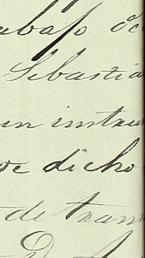 abajo de
Sebastia
un instru
de dicho
de tran